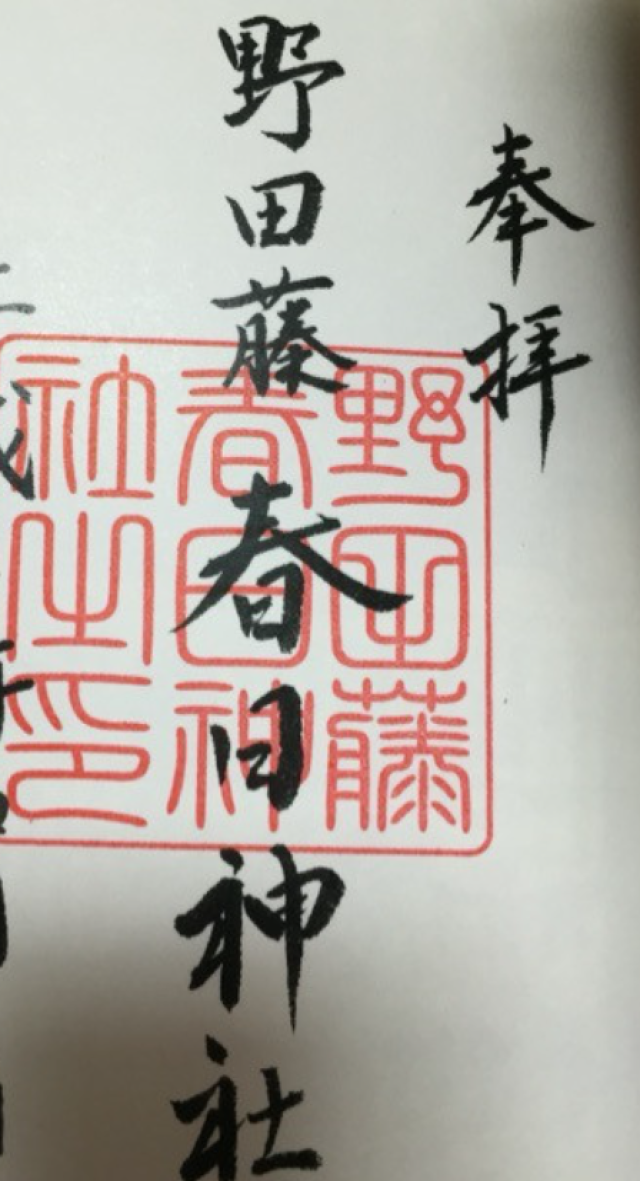 奉拝
野田藤春日神社
野田藤
春日神
社之印